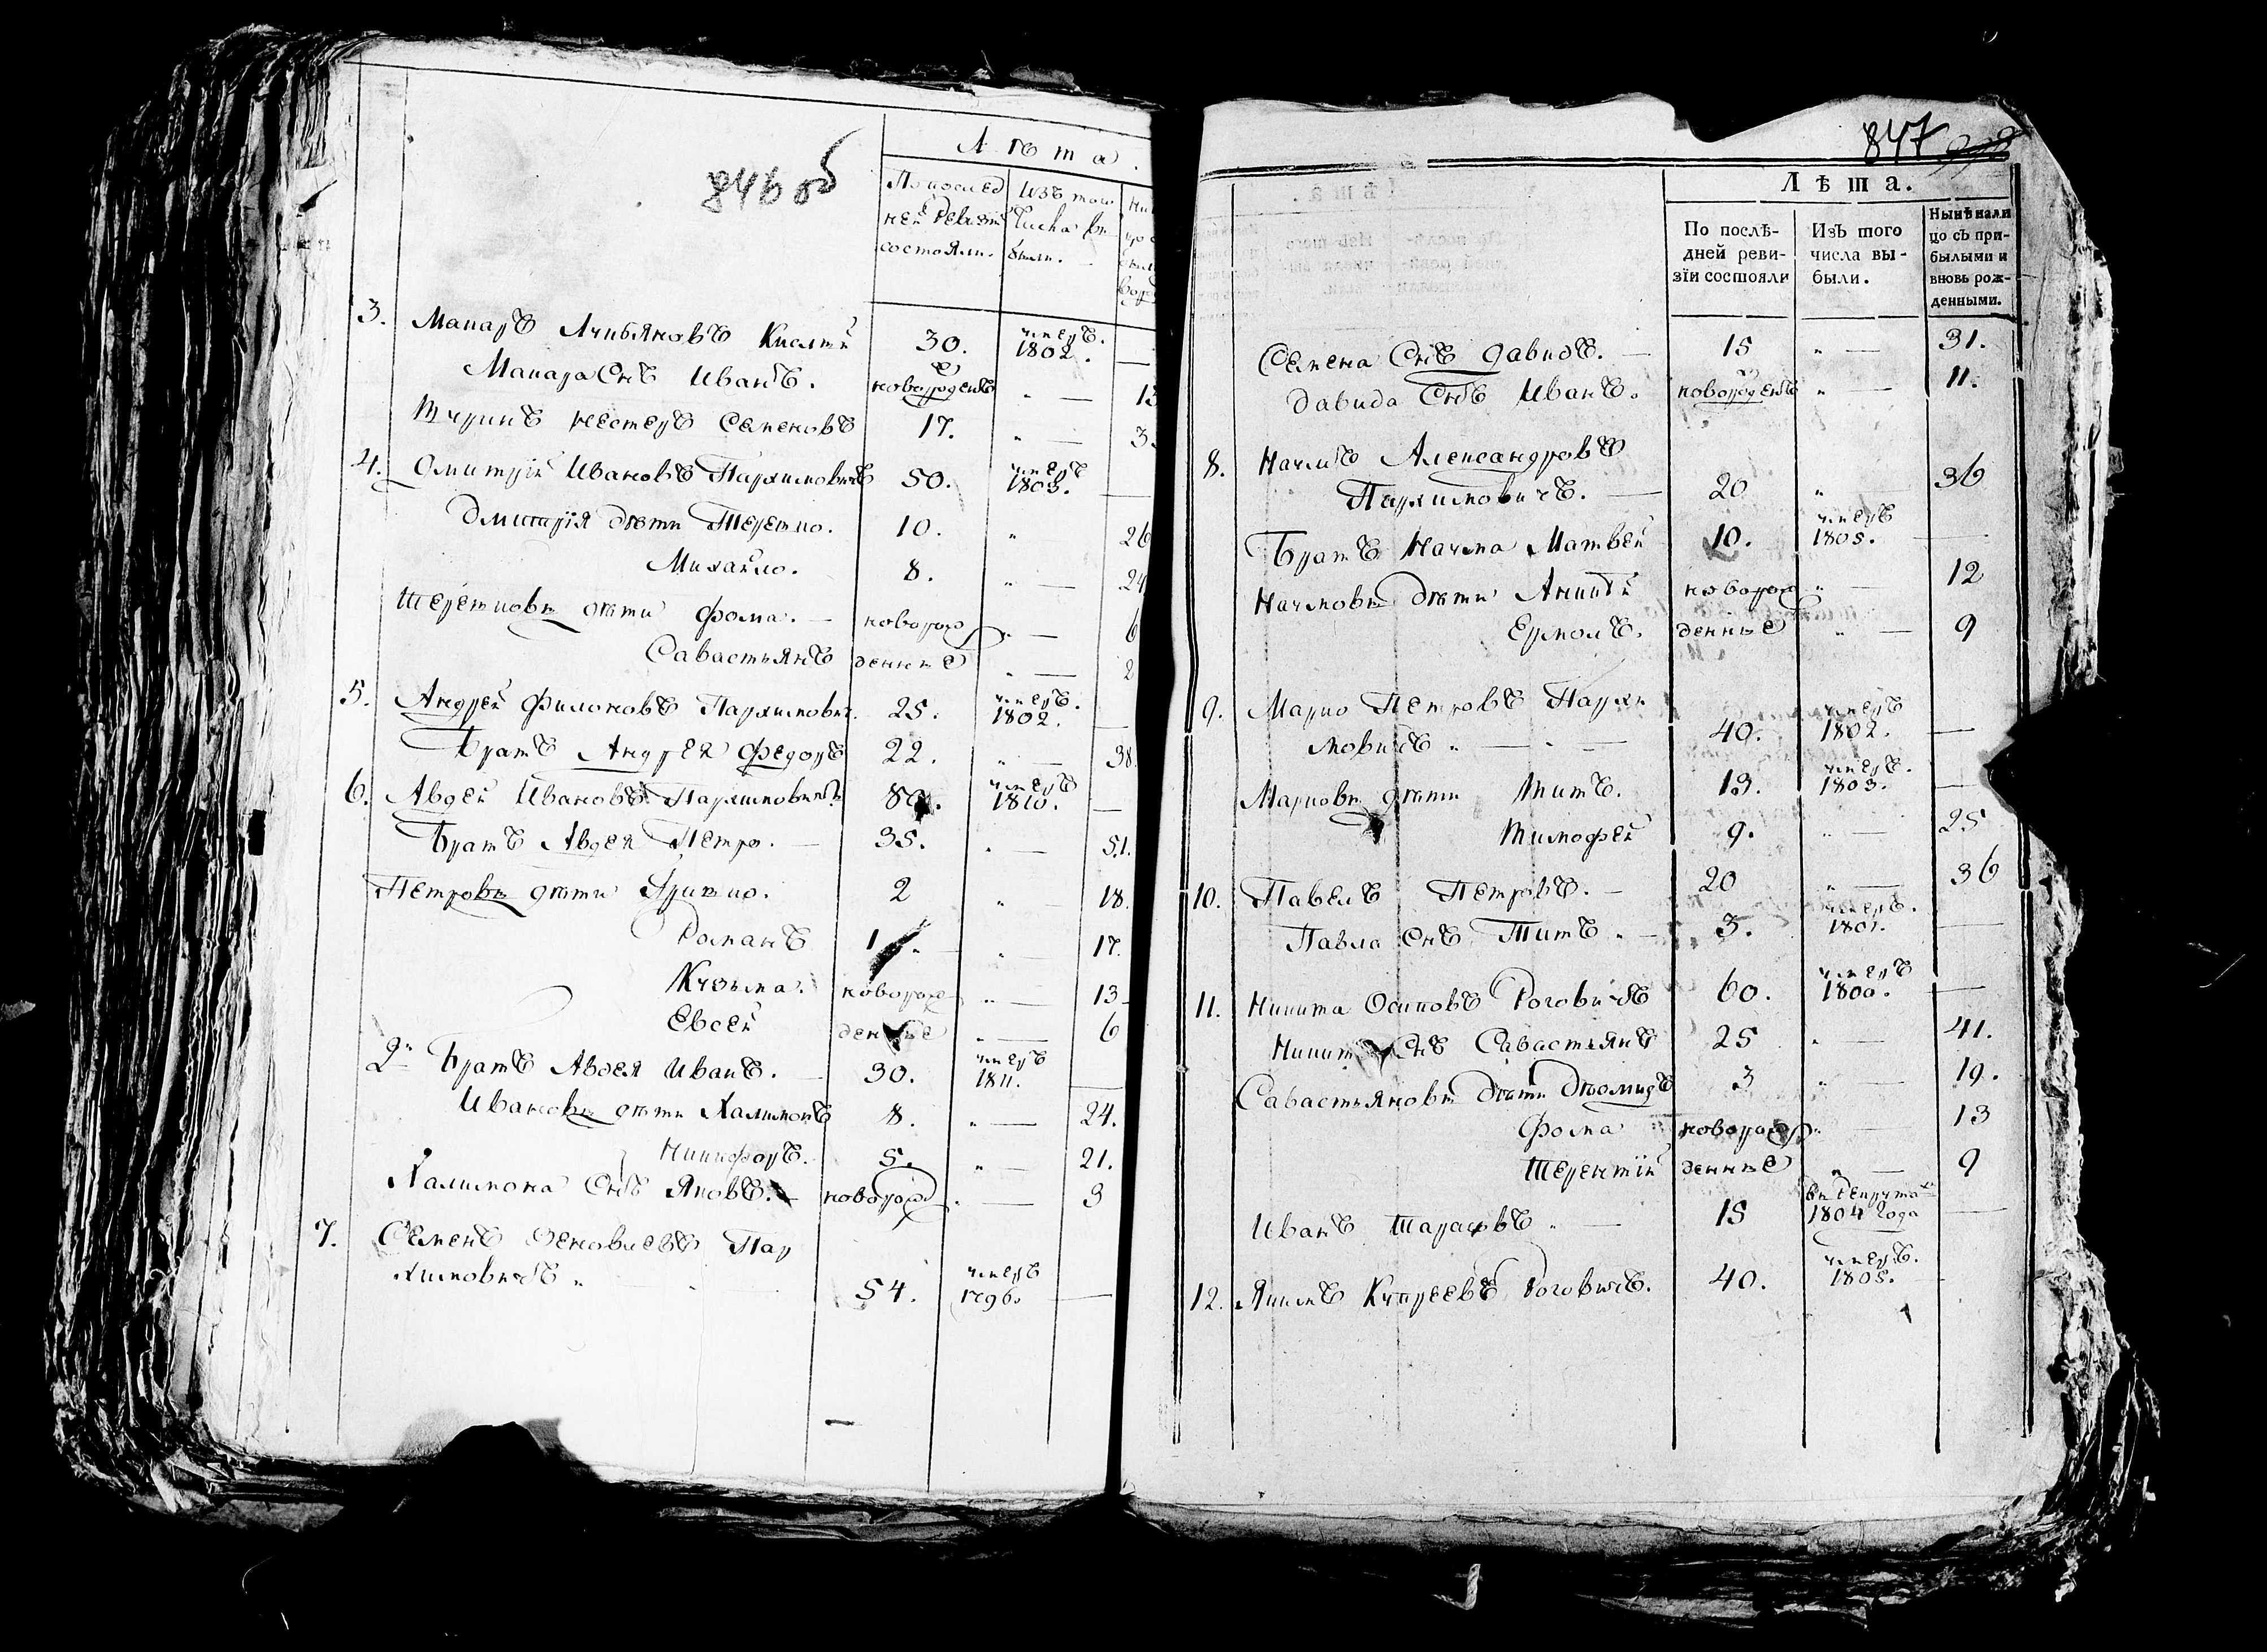 846 об
Лѣта.
По послед
ней ревизіи
состояли.
Изъ того
числа вы
были.
3. Макаръ Лукьяновъ 30. умеръ. 1802.
Макара Снъ Иванъ. новорожденъ " — 13
Нестеръ Семеновъ 17. " —
4. Дмитрій Ивановъ Пархимовичъ 50. умеръ 1803. —
Дмитрія дѣти Терешко. 10. " 26
Михайло. 8. " — 24
Терешковы дѣти Фома. — новорож " — 6
Савастьянъ денные " — 2
5. Андрей Филоновъ Пархимович. 25. умеръ. 1802. —
Братъ Андрея Федоръ 22. " — 38.
6. Авдей Ивановъ Пархимовичъ умеръ 1810. —
Братъ Авдея Петро. — 35. " — 51.
Петровы дѣти 2 " — 18.
Романъ 1. " — 17.
Кузьма. новорож " — 13
Евсей денные " — 6
2й Братъ Авдея Иванъ. — 30. умеръ 1811. —
Ивановы дѣти Халимонъ 8. " — 24.
Никифоръ. 5. " — 21.
Халимона Снъ Яковъ. — новорож " — 3
7. Семенъ Зеновиевъ Пар
химовичъ " 54. умеръ 1796. —
847
Лѣта.
По послѣ-
дней реви-
зіи состояли
Изъ того
числа вы-
были.
Нынѣ нали
цо съ при-
былыми и
вновь рож-
денными.
Семена Снъ Давидъ. — 15 " — 31.
Давида Снъ Иванъ. новорожденъ " — 11.
8. Наумъ Александровъ
Пархимовичъ. — 20 " 36
Братъ Наума Матвей 10. умеръ 1805. —
Наумовы дѣти новорож " — 12
Ермолъ. денные " — 9
9. Марко Петровъ Пархи
мовичъ " — " — 40. умеръ 1802. —
Марковы дѣти Титъ. 13. умеръ. 1803. —
Тимофей 9. " — 25
10. Павелъ Петровъ. — 20 " — 36
Павла Снъ Титъ " — 3. умеръ. 1801. —
11. Никита Осиповъ Роговичъ 60. умеръ 1800. —
Никиты Снъ Савастьянъ 25 " — 41.
Савастьяновы дѣти Дѣомидъ 3 " — 19.
Фома новорож " — 13
Терентій денные " — 9
Иванъ Тарасовъ " — 15 въ рекруты 1804 года —
12. Якимъ Купреевъ Роговичъ. 40. умеръ. 1805.